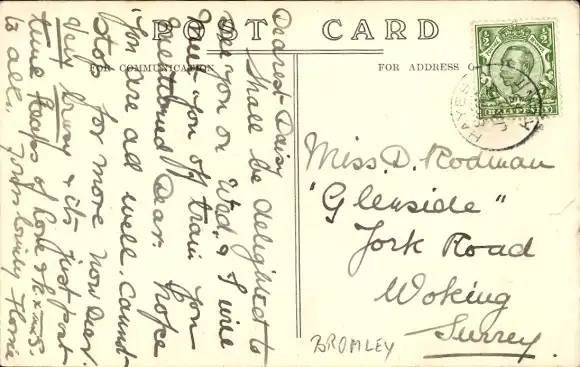 POST CARD
FOR COMMUNICATION
FOR ADDRESS O
Dearest Daisy
Shall be delighted to
see you on Wed, & I will
meet you off train you
mentioned Dear. Hope
you are all well. Cannot
stop for more now Dear.
Very & its just post
time Heaps of love &
to all, yours lovingly Florrie
Miss. D. Rodman
"Glenside"
York Road
Woking
Surrey.
BROMLEY
HAYES